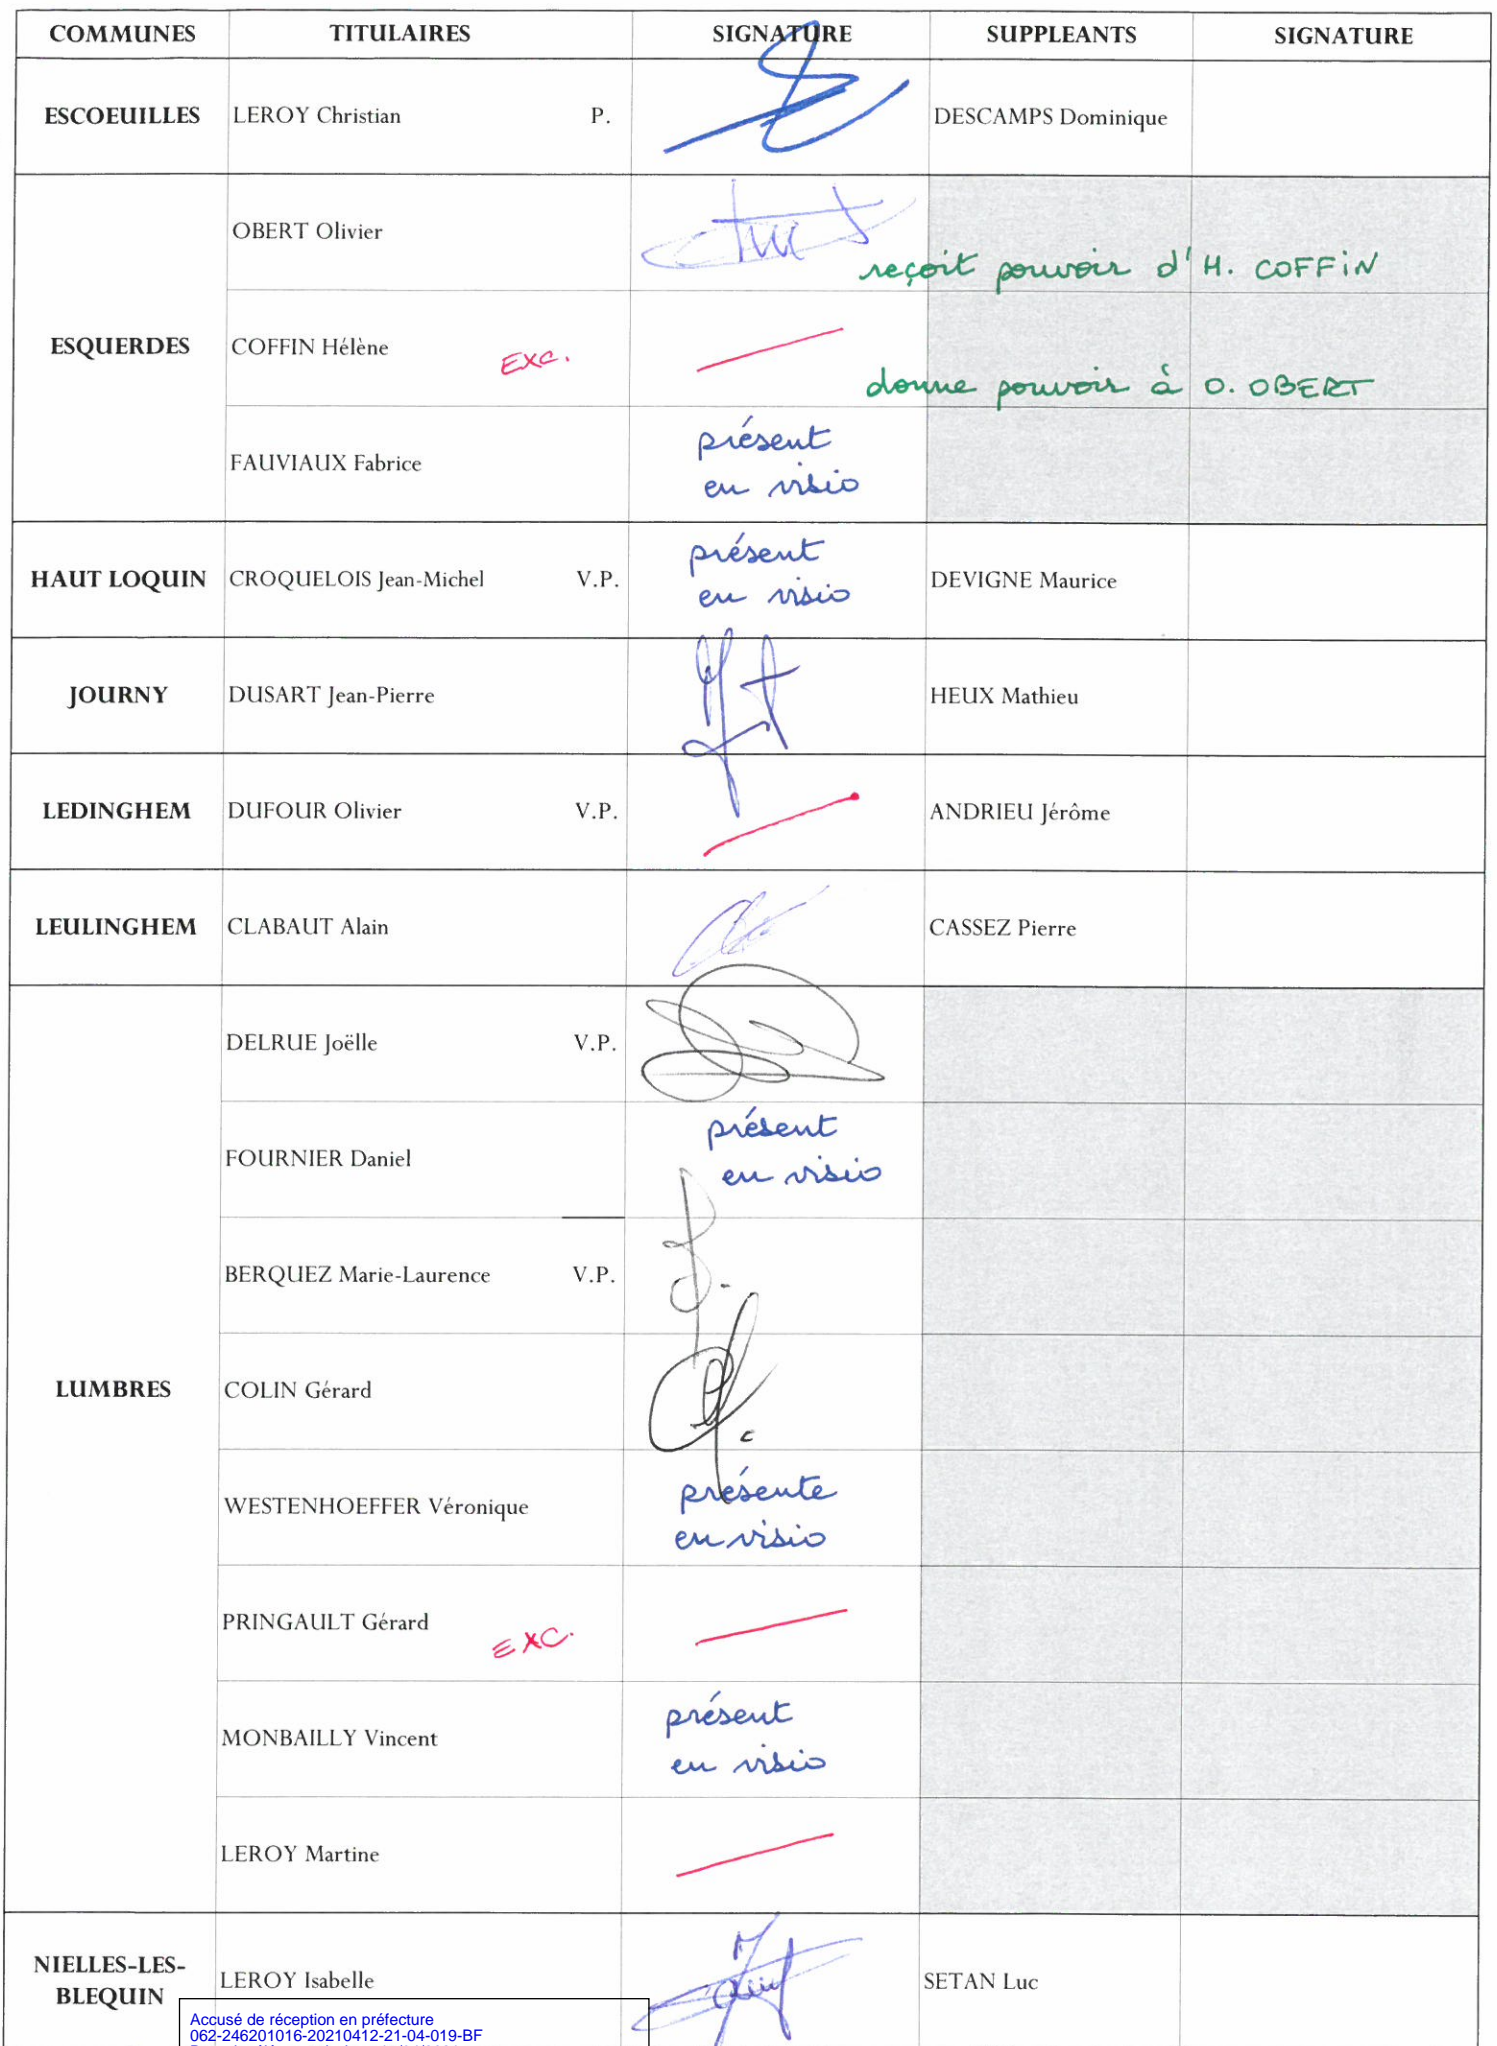 COMMUNES TITULAIRES SIGNATURE SUPPLEANTS SIGNATURE
ESCOEUILLES LEROY Christian P. DESCAMPS Dominique
OBERT Olivier
reçoit pouvoir d'H. COFFIN
ESQUERDES COFFIN Hélène EXC.
donne pouvoir à O. OBERT
FAUVIAUX Fabrice présent
en visio
HAUT LOQUIN CROQUELOIS Jean-Michel V.P. présent
en visio
DEVIGNE Maurice
JOURNY DUSART Jean-Pierre HEUX Mathieu
LEDINGHEM DUFOUR Olivier V.P. ANDRIEU Jérôme
LEULINGHEM CLABAUT Alain CASSEZ Pierre
DELRUE Joëlle V.P.
FOURNIER Daniel présent
en visio
BERQUEZ Marie-Laurence V.P.
LUMBRES COLIN Gérard
WESTENHOEFFER Véronique présente
en visio
PRINGAULT Gérard EXC.
MONBAILLY Vincent présent
en visio
LEROY Martine
NIELLES-LES-
BLEQUIN LEROY Isabelle SETAN Luc
Accusé de réception en préfecture
062-246201016-20210412-21-04-019-BF